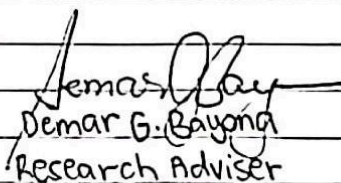 Demar G. Bayong
Research Adviser